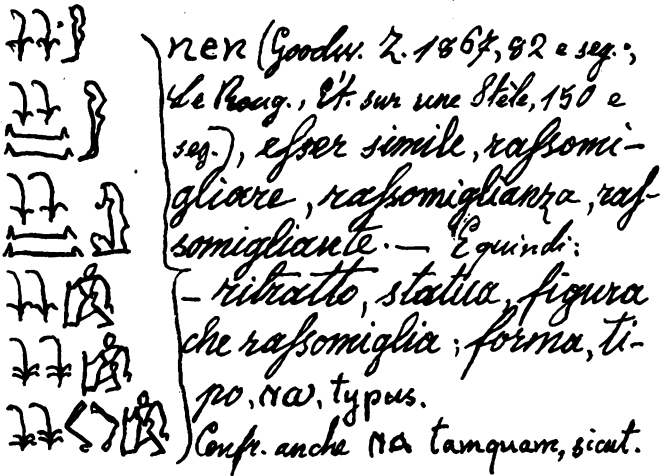 nen (Goodw. Z. 1867, 82 e seg.;
Le Roug., Ét. sur une Stèle, 150 e
seg.), esser simile, rassomi-
gliare, rassomiglianza, ras-
somigliante. — E quindi:
- ritratto, statua, figura
che rassomiglia; forma, ti-
po, ⲛⲁ, typus.
Confr. anche ⲛⲁ tamquam, sicut.